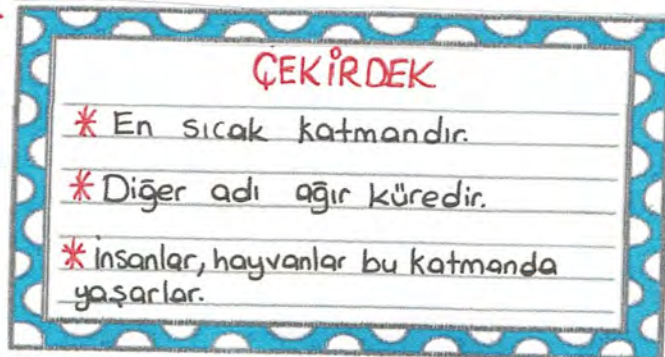 ÇEKİRDEK
* En sıcak katmandır.
* Diğer adı ağır küredir.
* İnsanlar, hayvanlar bu katmanda
yaşarlar.